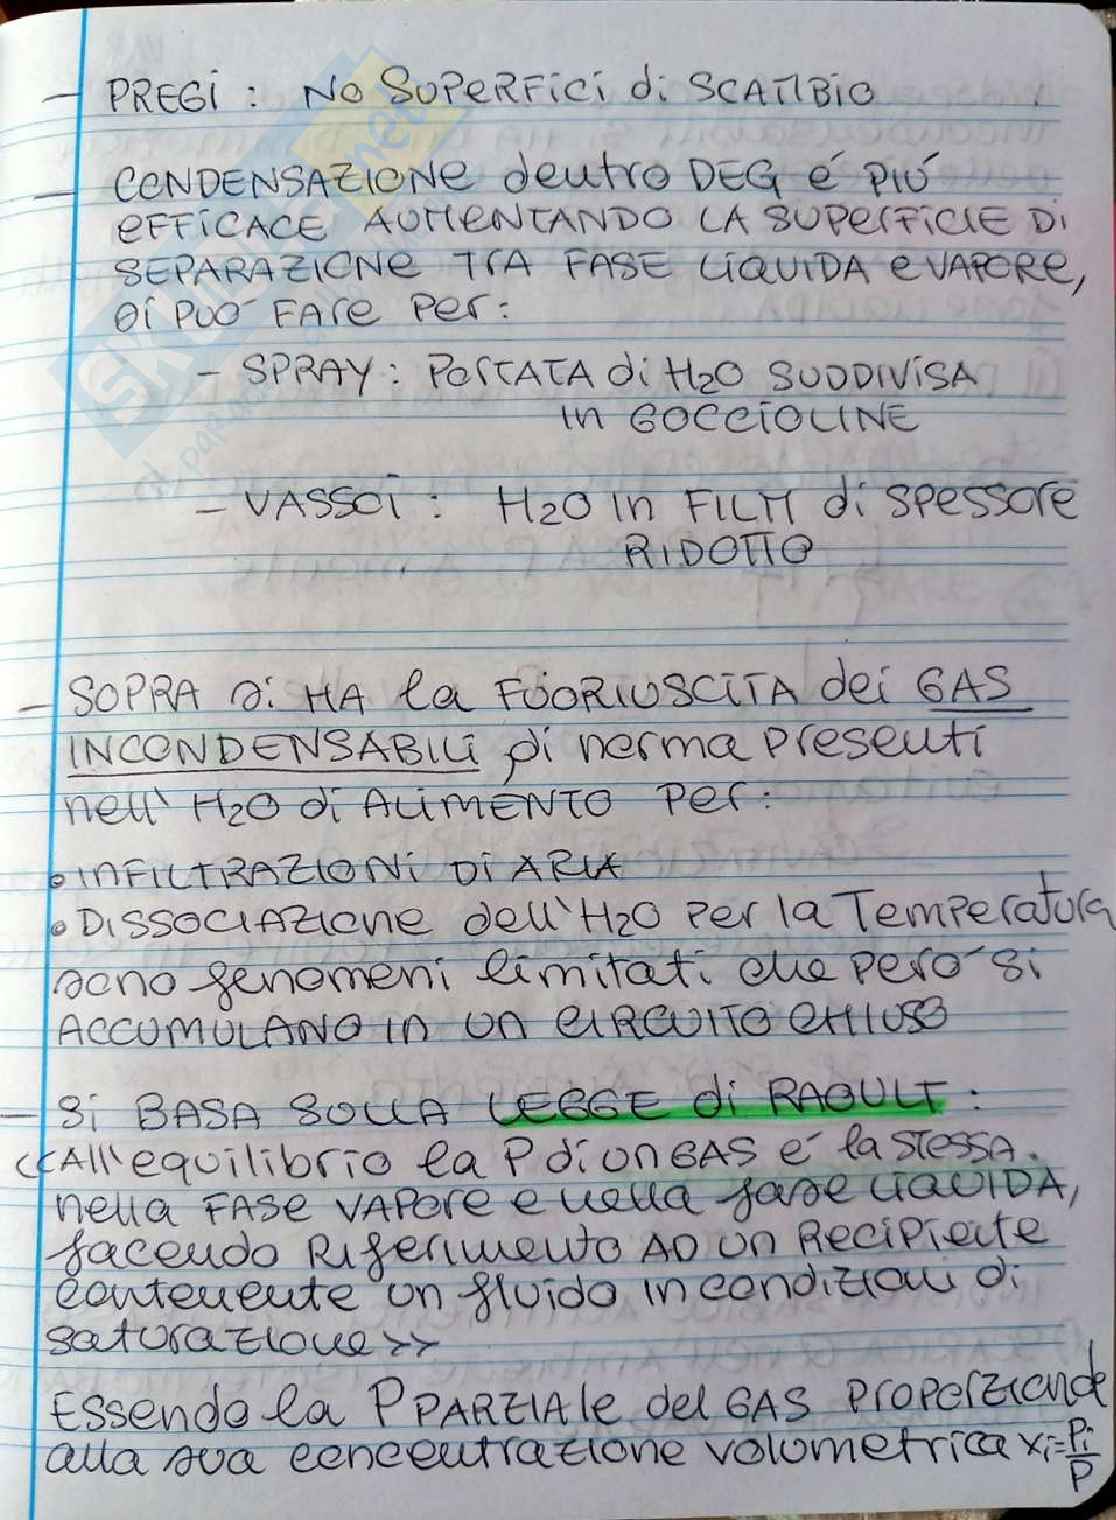 - PREGI : NO SUPERFICI di SCAMBIO
- CONDENSAZIONE dentro DEG é PIÚ
EFFICACE AUMENTANDO LA SUPERFICIE DI
SEPARAZIONE TRA FASE LIQUIDA e VAPORE,
si PUÓ FARE PER:
- SPRAY : PORTATA di H2O SUDDIVISA
in GOCCIOLINE
- VASSOI : H2O in FILM di SPESSORE
RIDOTTO
- SOPRA si HA la FUORIUSCITA dei GAS
INCONDENSABILI di norma presenti
nell' H2O di ALIMENTO PER:
• INFILTRAZIONI DI ARIA
• DISSOCIAZIONE dell'H2O PER la Temperatura
sono fenomeni limitati che peró si
ACCUMULANO IN UN CIRCUITO CHIUSO
- Si BASA SULLA LEGGE di RAOULT :
<<All'equilibrio la P di un GAS é la STESSA
nella FASE VAPORE e nella fase LIQUIDA,
facendo Riferimento AD un Recipiente
contenente un fluido in condizioni di
saturazione>>
ESSendo la P PARZIALE del GAS PROPORZIONALE
alla sua concentrazione volumetrica xi=Pi/P
SKUOLA.net